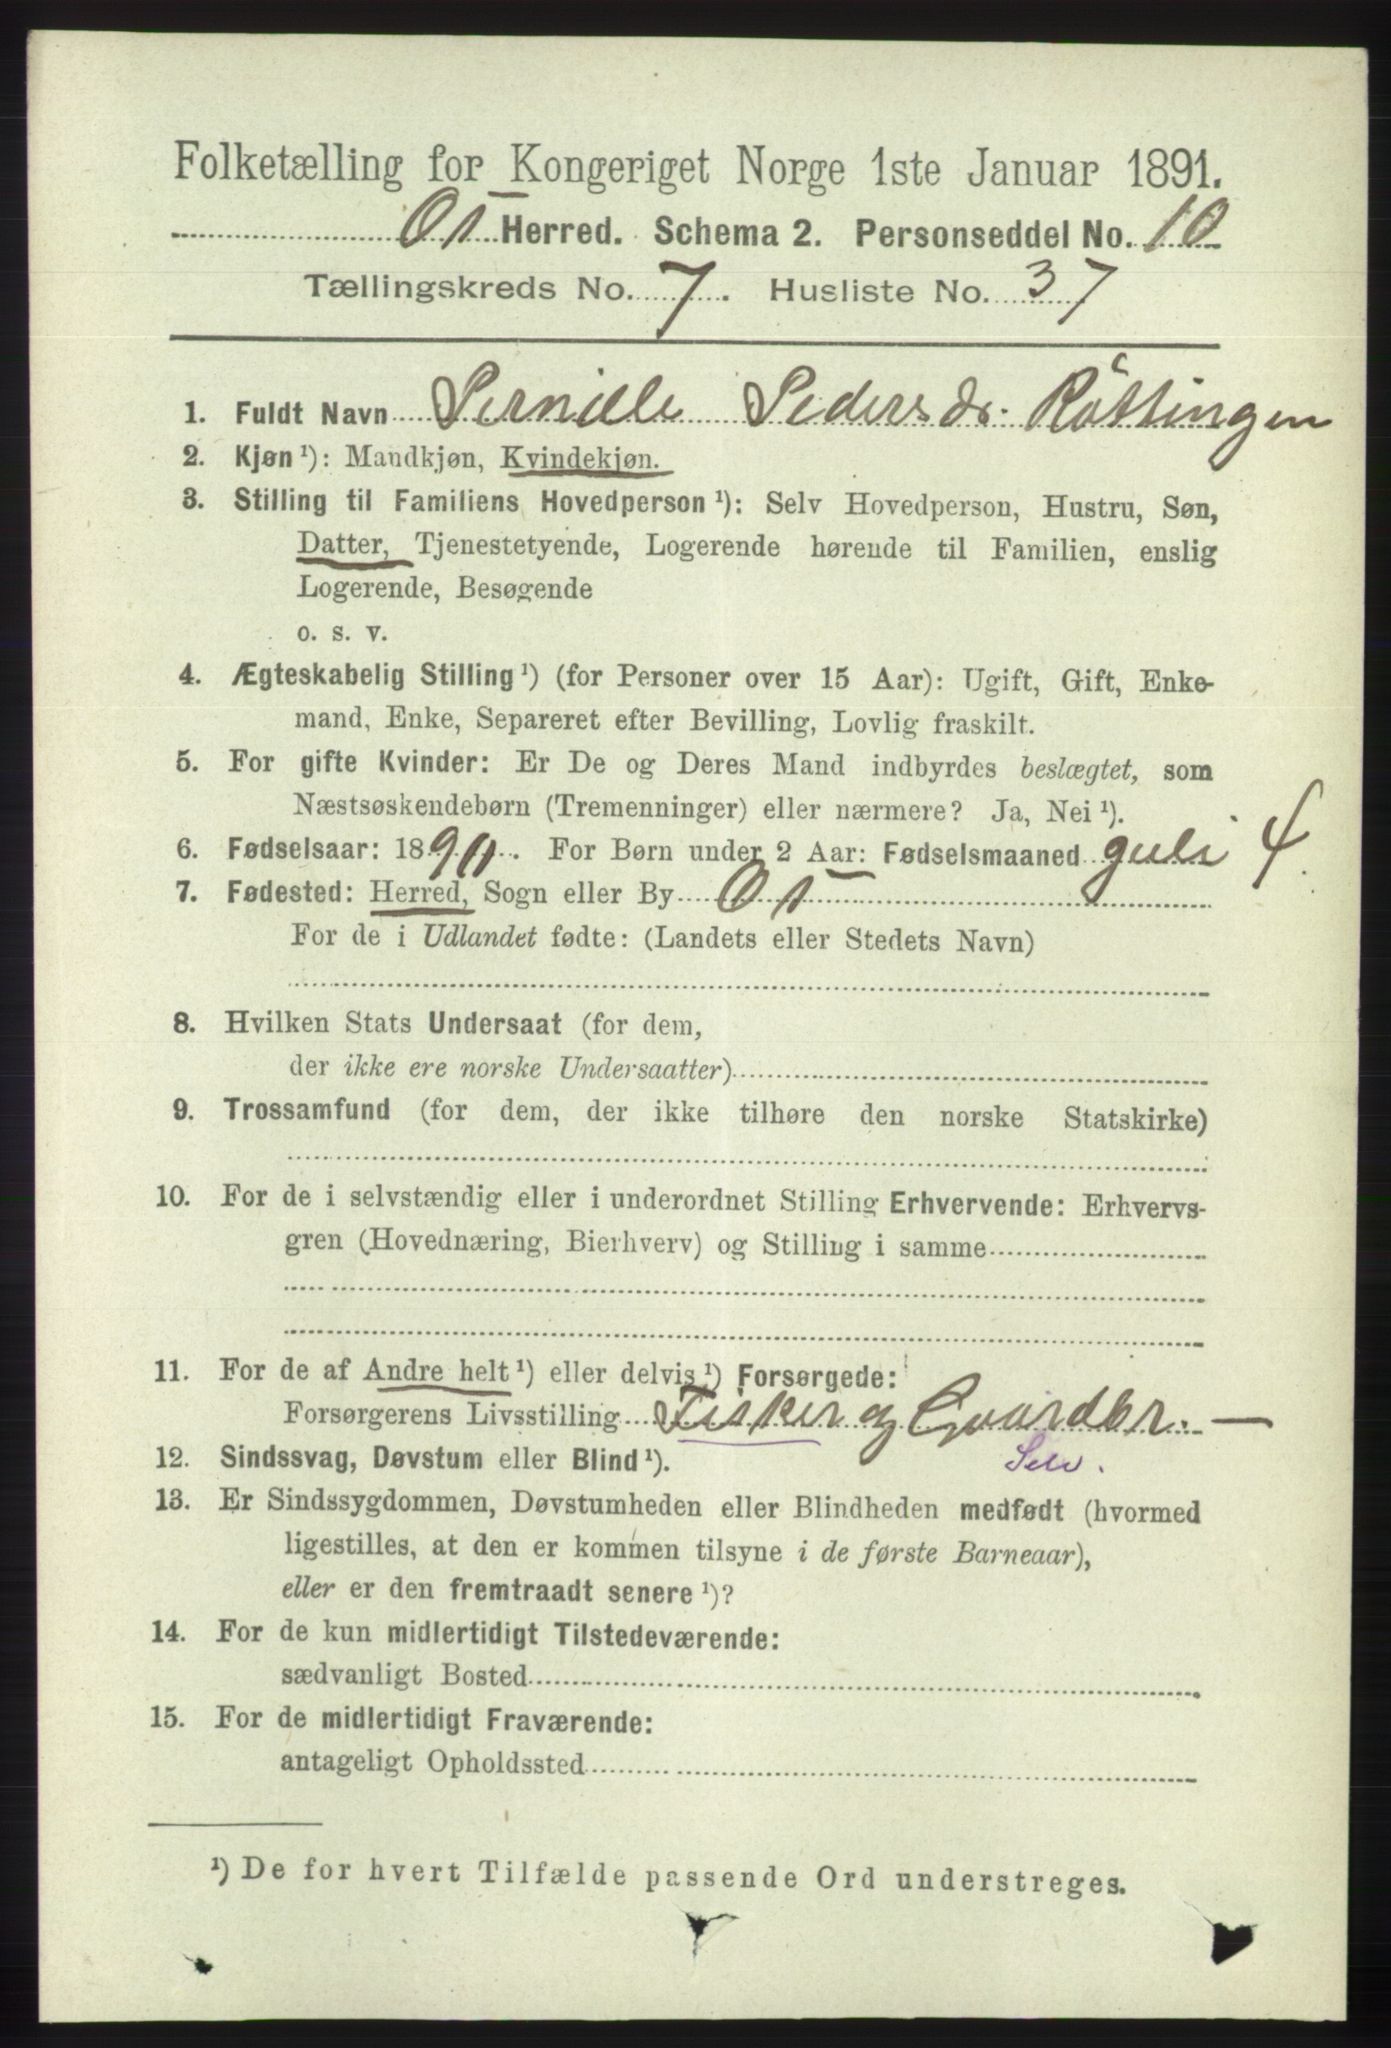 Folketælling for Kongeriget Norge 1ste Januar 1891.
Os Herred. Schema 2. Personseddel No. 10
Tællingskreds No. 7. Husliste No. 37
1. Fuldt Navn Pernille Pedersdr. Røttingen
2. Kjøn ¹): Mandkjøn, Kvindekjøn.
3. Stilling til Familiens Hovedperson ¹): Selv Hovedperson, Hustru, Søn,
Datter, Tjenestetyende, Logerende hørende til Familien, enslig
Logerende, Besøgende
o. s. v.
4. Ægteskabelig Stilling ¹) (for Personer over 15 Aar): Ugift, Gift, Enke-
mand, Enke, Separeret efter Bevilling, Lovlig fraskilt.
5. For gifte Kvinder: Er De og Deres Mand indbyrdes beslægtet, som
Næstsøskendebørn (Tremenninger) eller nærmere? Ja, Nei ¹).
6. Fødselsaar: 1890. For Børn under 2 Aar: Fødselsmaaned Juli 4
7. Fødested: Herred, Sogn eller By Os
For de i Udlandet fødte: (Landets eller Stedets Navn)
8. Hvilken Stats Undersaat (for dem,
der ikke ere norske Undersaatter)
9. Trossamfund (for dem, der ikke tilhøre den norske Statskirke)
10. For de i selvstændig eller i underordnet Stilling Erhvervende: Erhvervs-
gren (Hovednæring, Bierhverv) og Stilling i samme
11. For de af Andre helt ¹) eller delvis ¹) Forsørgede:
Forsørgerens Livsstilling Fisker og Gaardbr. —
Selv.
12. Sindssvag, Døvstum eller Blind ¹).
13. Er Sindssygdommen, Døvstumheden eller Blindheden medfødt (hvormed
ligestilles, at den er kommen tilsyne i de første Barneaar),
eller er den fremtraadt senere ¹)?
14. For de kun midlertidigt Tilstedeværende:
sædvanligt Bosted
15. For de midlertidigt Fraværende:
antageligt Opholdssted
¹) De for hvert Tilfælde passende Ord understreges.